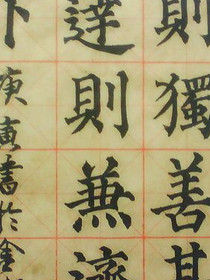 則獨善其
達則兼濟
下
庚寅書於金